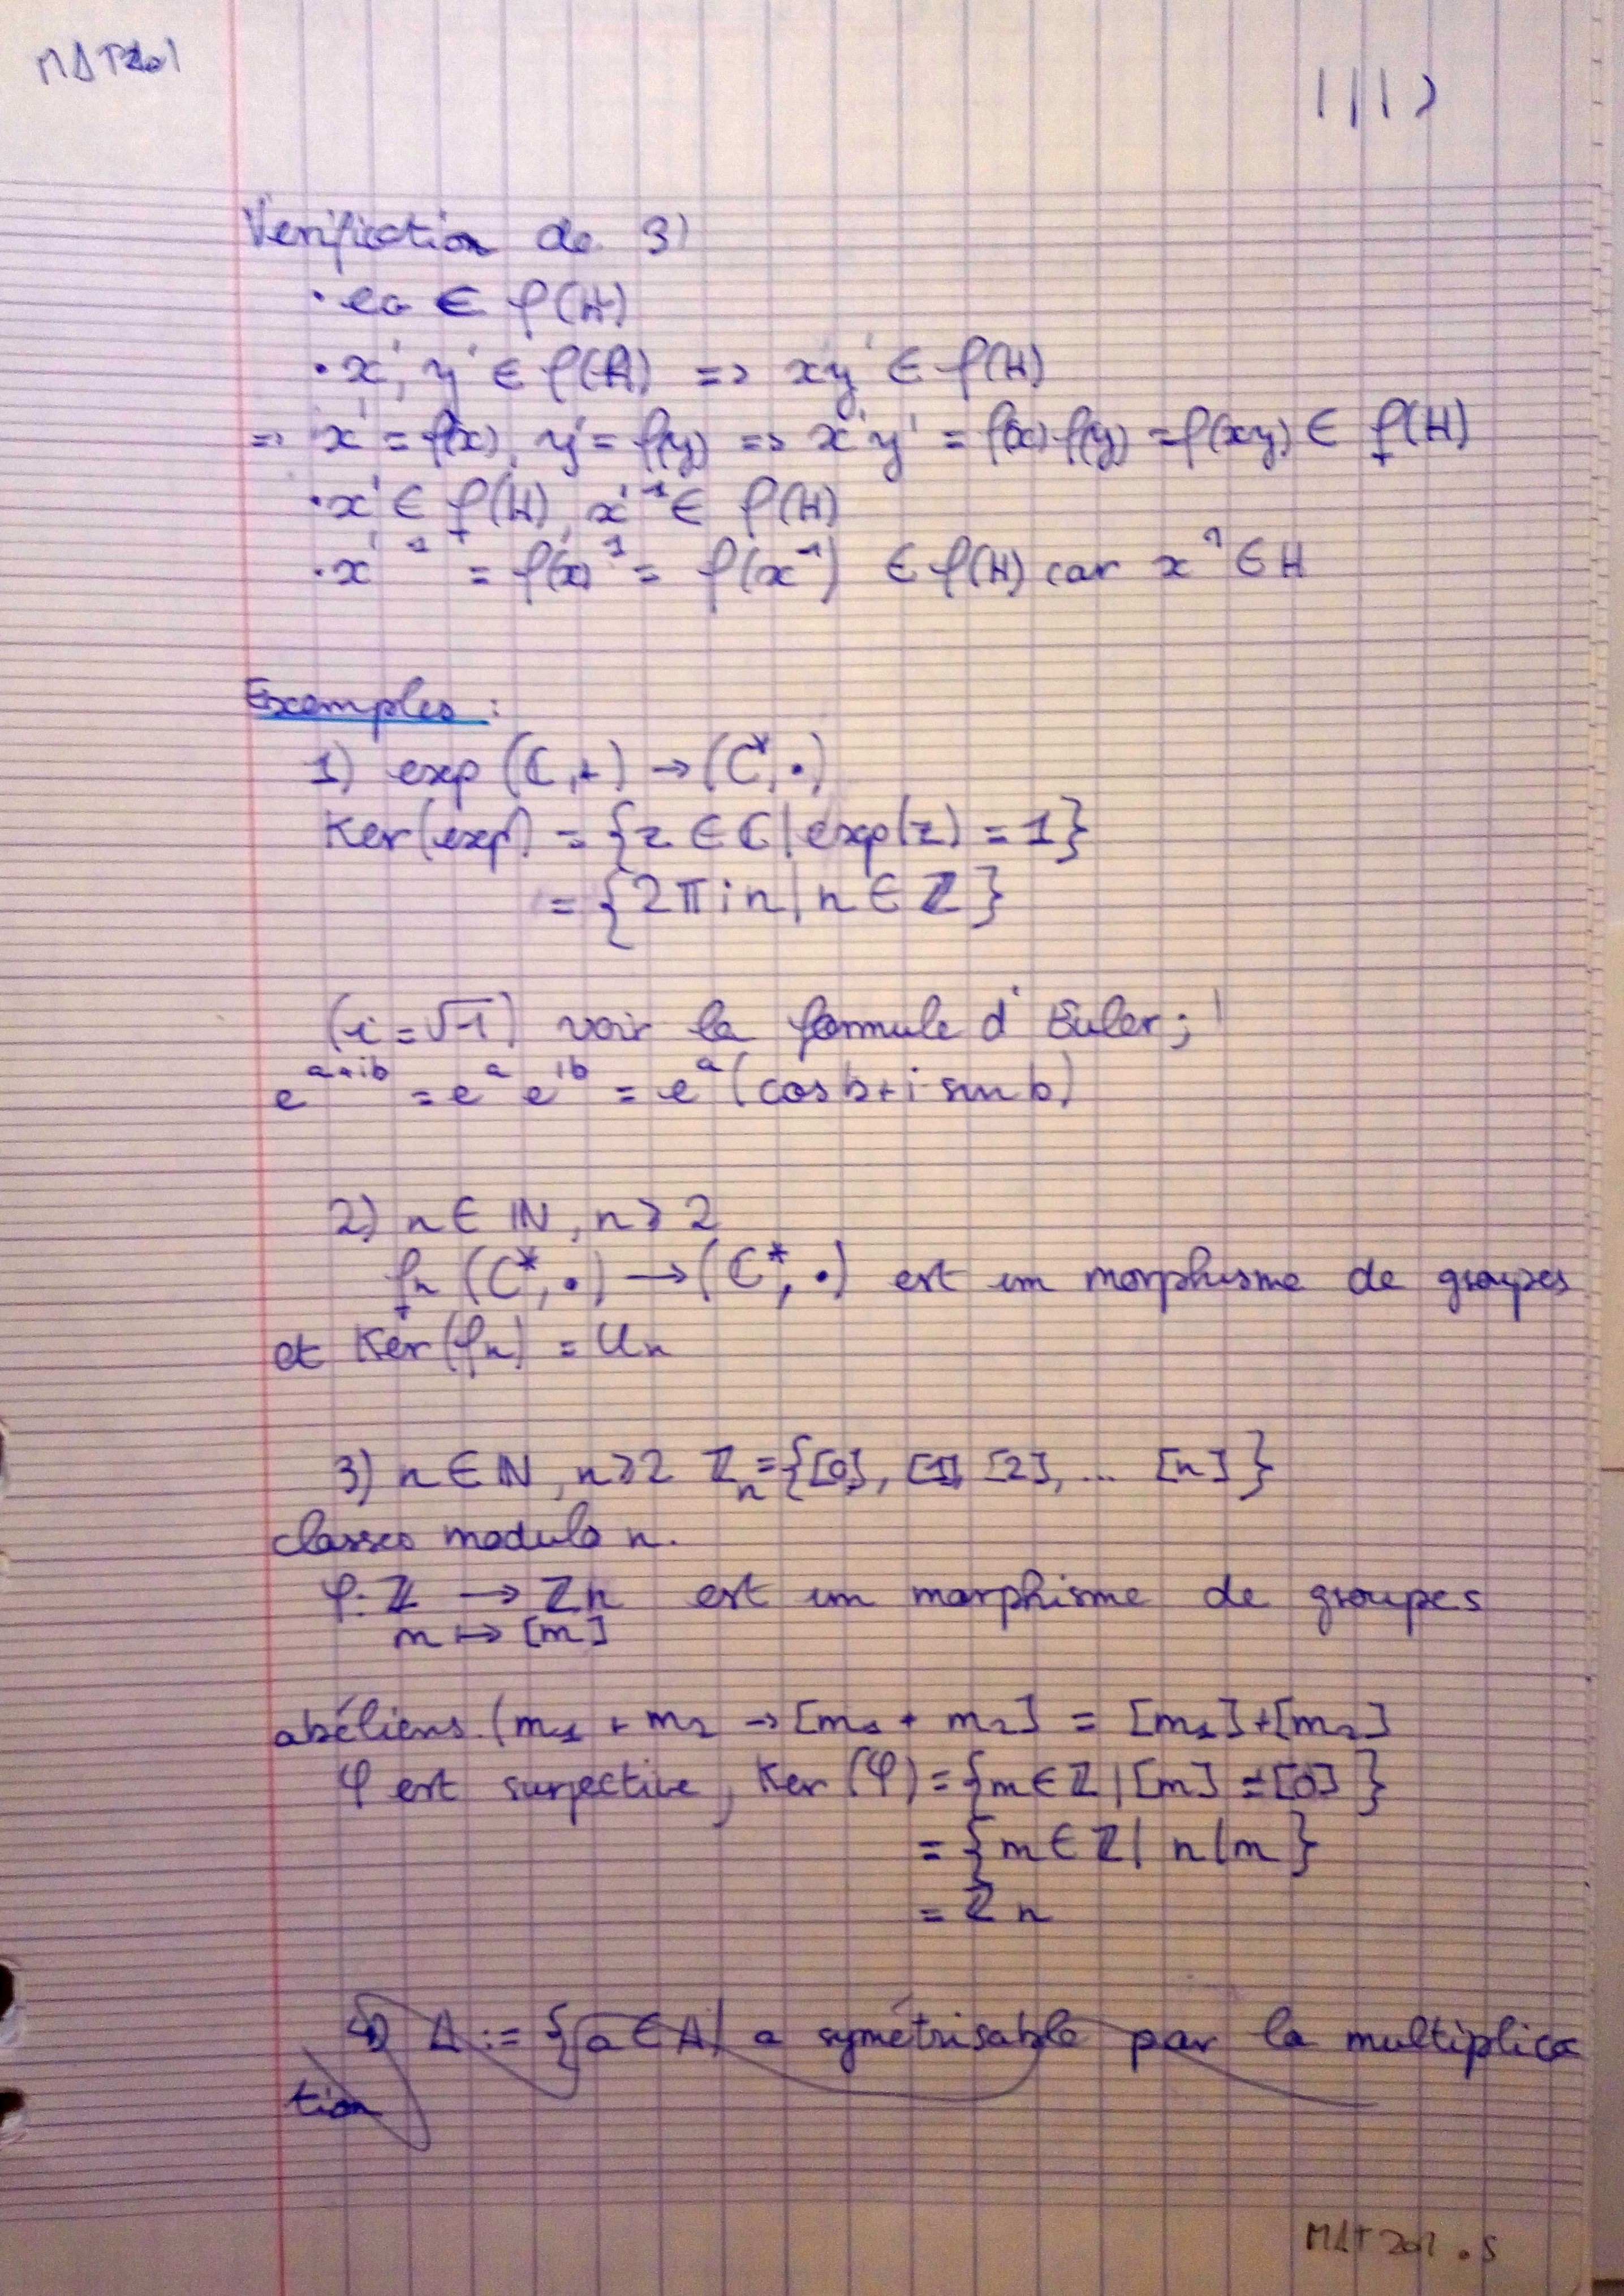 MAT201
Verification de 3)
• eG ∈ f(H)
• x', y' ∈ f(H) => xy' ∈ f(H)
=> x' = f(x), y' = f(y) => x'y' = f(x)f(y) = f(xy) ∈ f(H)
• x' ∈ f(H), x'⁻¹ ∈ f(H)
• x'⁻¹ = f(x)⁻¹ = f(x⁻¹) ∈ f(H) car x⁻¹ ∈ H
Exemples :
1) exp (ℂ,+) → (ℂ*, •)
Ker(exp) = {z ∈ ℂ | exp(z) = 1}
= {2πin | n ∈ ℤ}
(i = √-1) voir la formule d'Euler;
e^(a+ib) = e^a e^(ib) = e^a (cos b + i sin b)
2) n ∈ ℕ, n ⩾ 2
fn (ℂ*, •) → (ℂ*, •) est un morphisme de groupes
et Ker(fn) = Un
3) n ∈ ℕ, n ⩾ 2 ℤn = {[0], [1], [2], ... [n]}
classes modulo n.
φ: ℤ → ℤn est un morphisme de groupes
m ↦ [m]
abéliens. (m1 + m2 → [m1 + m2] = [m1] + [m2]
φ est surjective, Ker (φ) = {m ∈ ℤ | [m] = [0]}
= {m ∈ ℤ | n | m}
= ℤn
4) A := {a ∈ A | a symétrisable par la multiplica
tion
MAT201.5